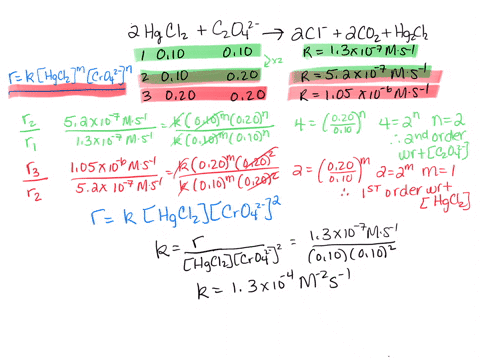 2HgCl₂ + C₂O₄²⁻ → 2Cl⁻ + 2CO₂ + Hg₂Cl₂
1 0.10 0.10 R = 1.3x10⁻⁷ M·s⁻¹
x2
r = k[HgCl₂]ᵐ[CrO₄²⁻]ⁿ 2 0.10 0.20 R = 5.2x10⁻⁷ M·s⁻¹
3 0.20 0.20 R = 1.05 x10⁻⁶ M·s⁻¹
r₂/r₁ 5.2x10⁻⁷ M·s⁻¹/1.3x10⁻⁷ M·s⁻¹ = k(0.10)ᵐ(0.20)ⁿ/k(0.10)ᵐ(0.10)ⁿ 4 = (0.20/0.10)ⁿ 4 = 2ⁿ n = 2
∴ 2nd order
wrt [C₂O₄²⁻]
r₃/r₂ 1.05x10⁻⁶ M·s⁻¹/5.2x10⁻⁷ M·s⁻¹ = k(0.20)ᵐ(0.20)²/k(0.10)ᵐ(0.20)² 2 = (0.20/0.10)ᵐ 2 = 2ᵐ m = 1
∴ 1ST order wrt
[HgCl₂]
r = k [HgCl₂][CrO₄²⁻]²
k = r/[HgCl₂][CrO₄²⁻]² = 1.3x10⁻⁷ M·s⁻¹/(0.10)(0.10)²
k = 1.3x10⁻⁴ M⁻²s⁻¹